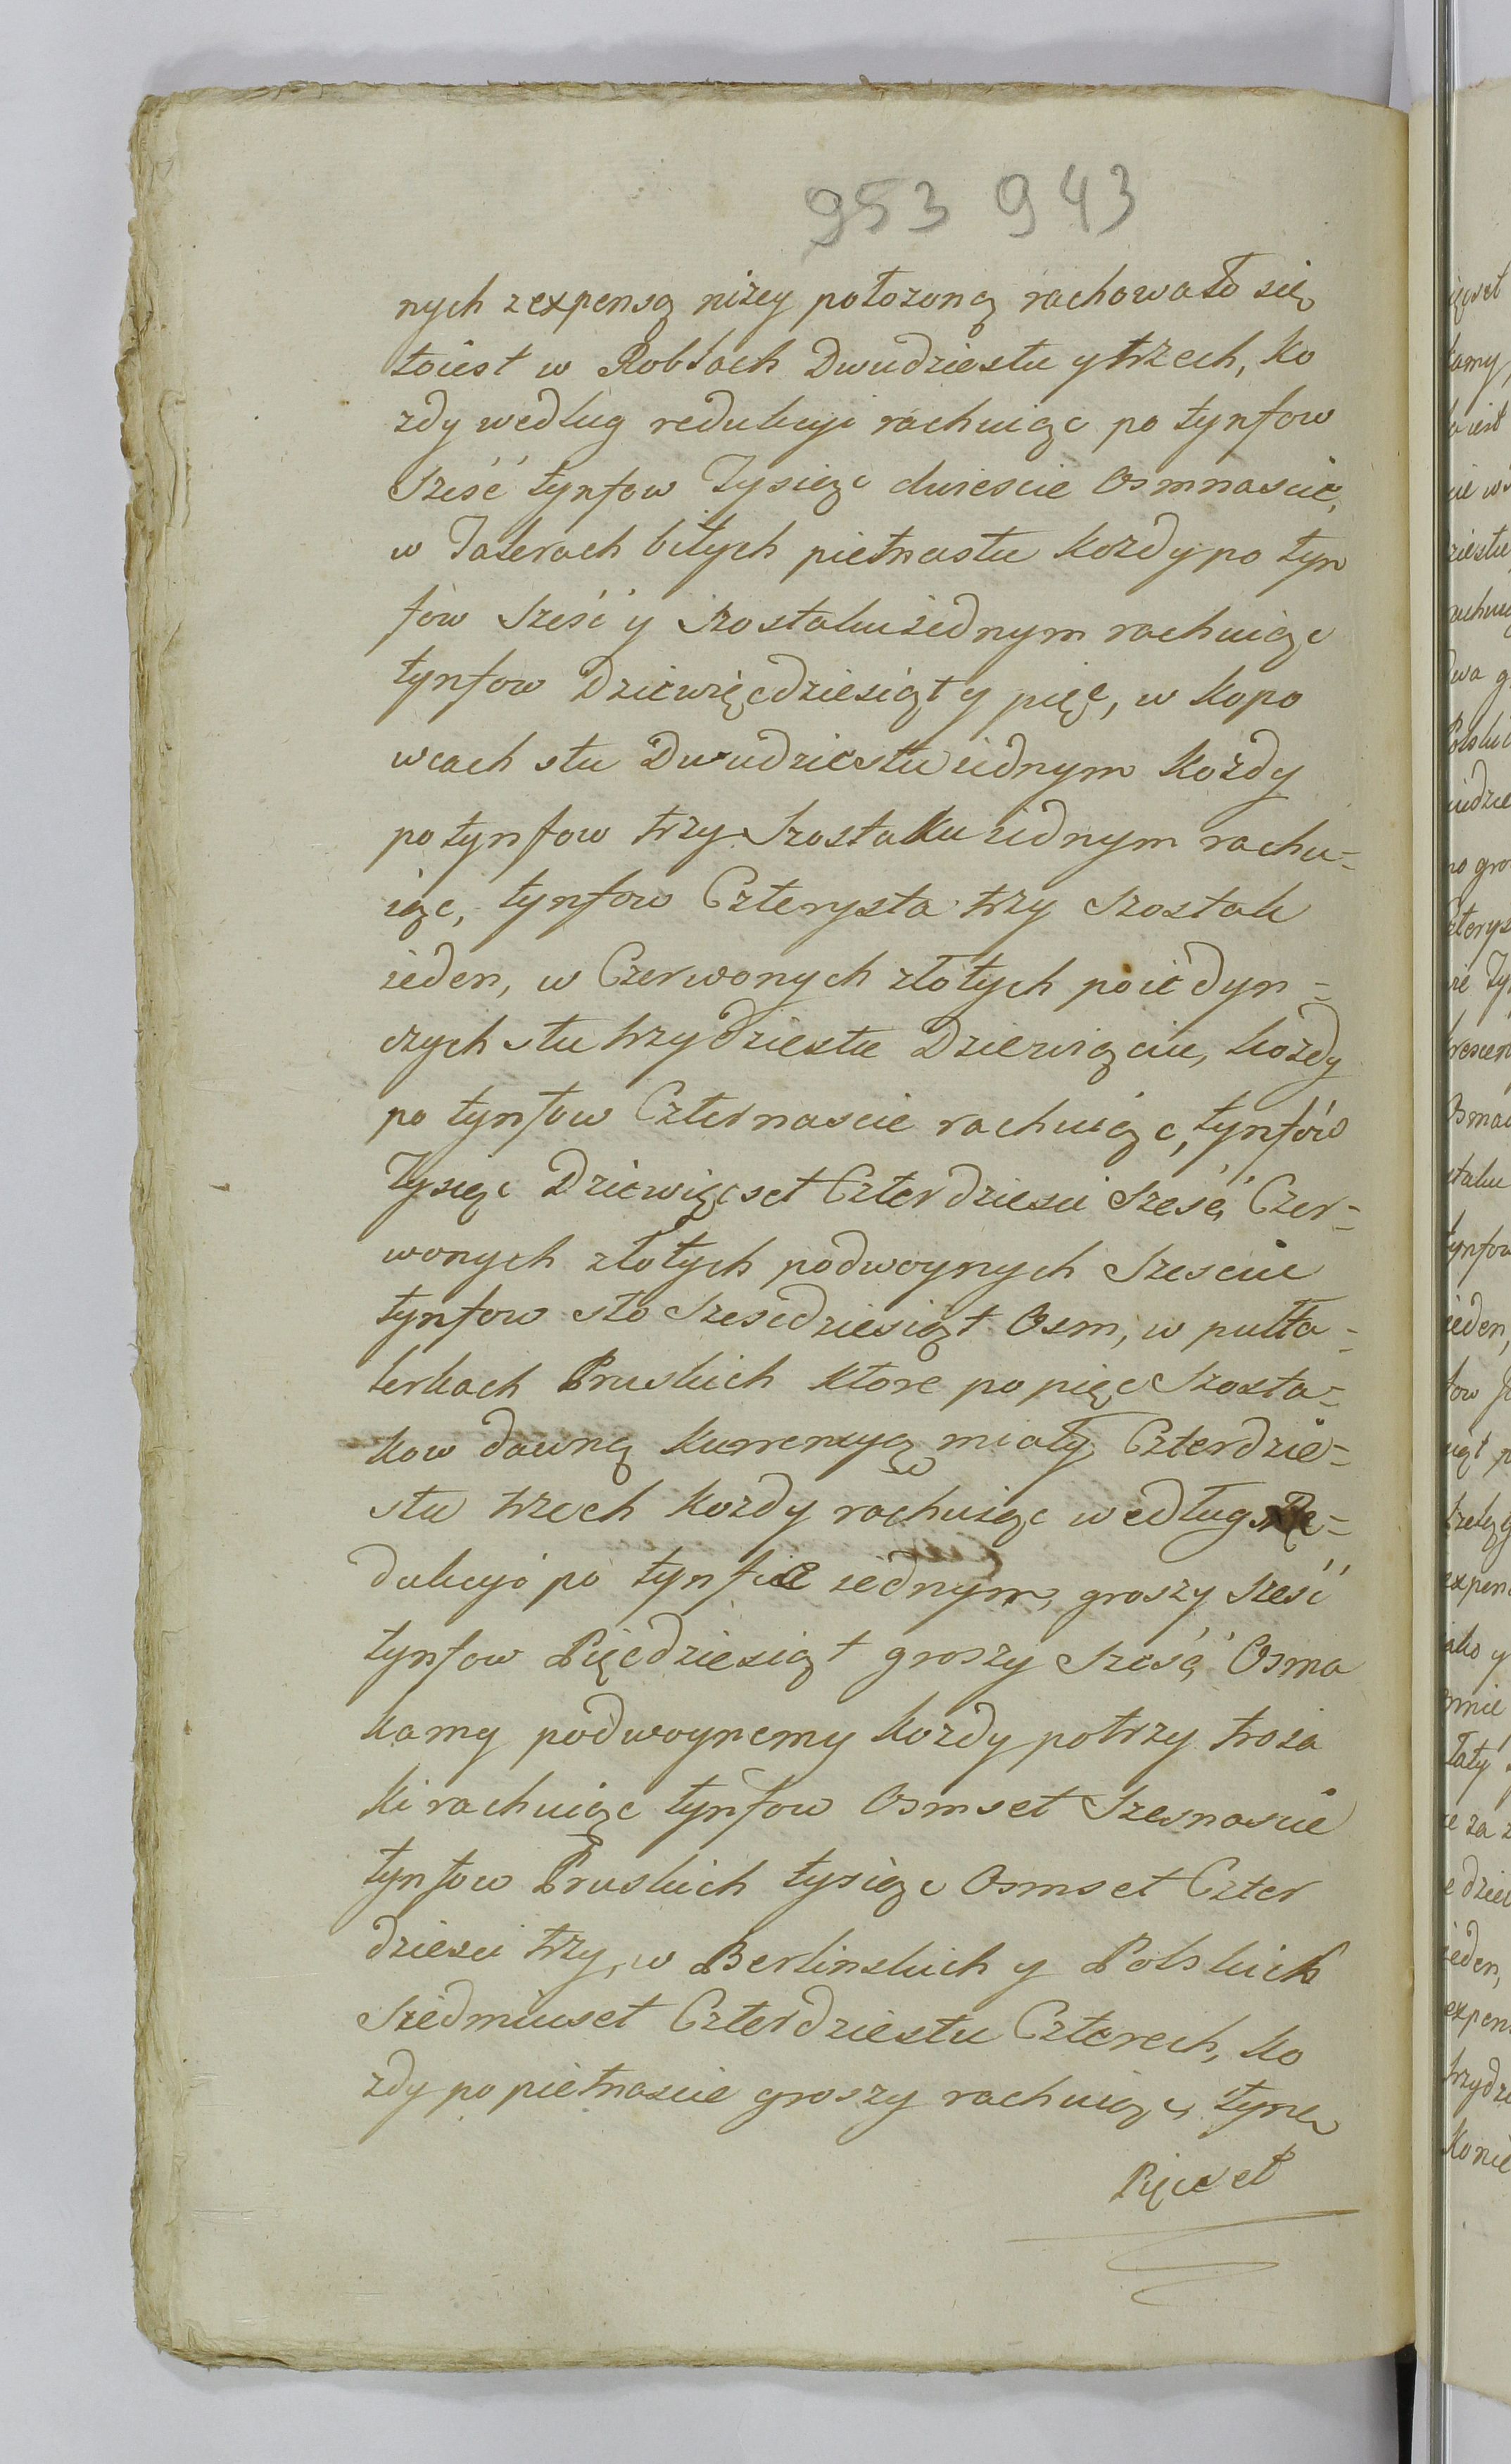 953 943
nych z expensą niżey położoną rachowało się
toiest w Roblach Dwudziestu y trzech, Ko
zdy według redukcyi rachuiąc po tynfow
Sześć tynfow Tysiąc dwiescie Osmnascie,
w Talerach bitych pietnastu Kozdy po tyn
fow Sześć y Szostaku iednym rachuiąc
tynfow Dziewięcdziesiąt y pięc, w Kopo
wcach stu Dwudziestu iednym Kożdy
po tynfow trzy Szostaku iednym rachu=
iąc, tynfow Czterysta trzy Szostak
ieden, w Czerwonych złotych poiedyn=
czych stu trzydziestu Dziewięciu, kożdy
po tynfow Czternascie rachuiąc, tynfów
Tysiąc Dziewięcset Czterdziesci Sześć, Czer=
wonych złotych podwoynych Szesciu
tynfow sto Szescdziesiąt Osm, w pułta=
lerkach Pruskich ktore po pięc Szosta=
kow dawną kurrencyą miały Czterdzie=
stu trzech kozdy rachuiąc według Re=
dukcyi po tynfie iednym, groszy sześć
tynfow Pięcdziesiąt groszy Sześć, Osma
kamy podwoynemy kozdy potrzy troia
ki rachuiąc tynfow Osmset Szesnascie
tynfow Pruskich tysiąc Osmset Czter
dziesci trzy, w Berlinskich y Polskich
Siedmiuset Czterdziestu Czterech, ko
zdy po pietnascie groszy rachuiąc,
Pięcset